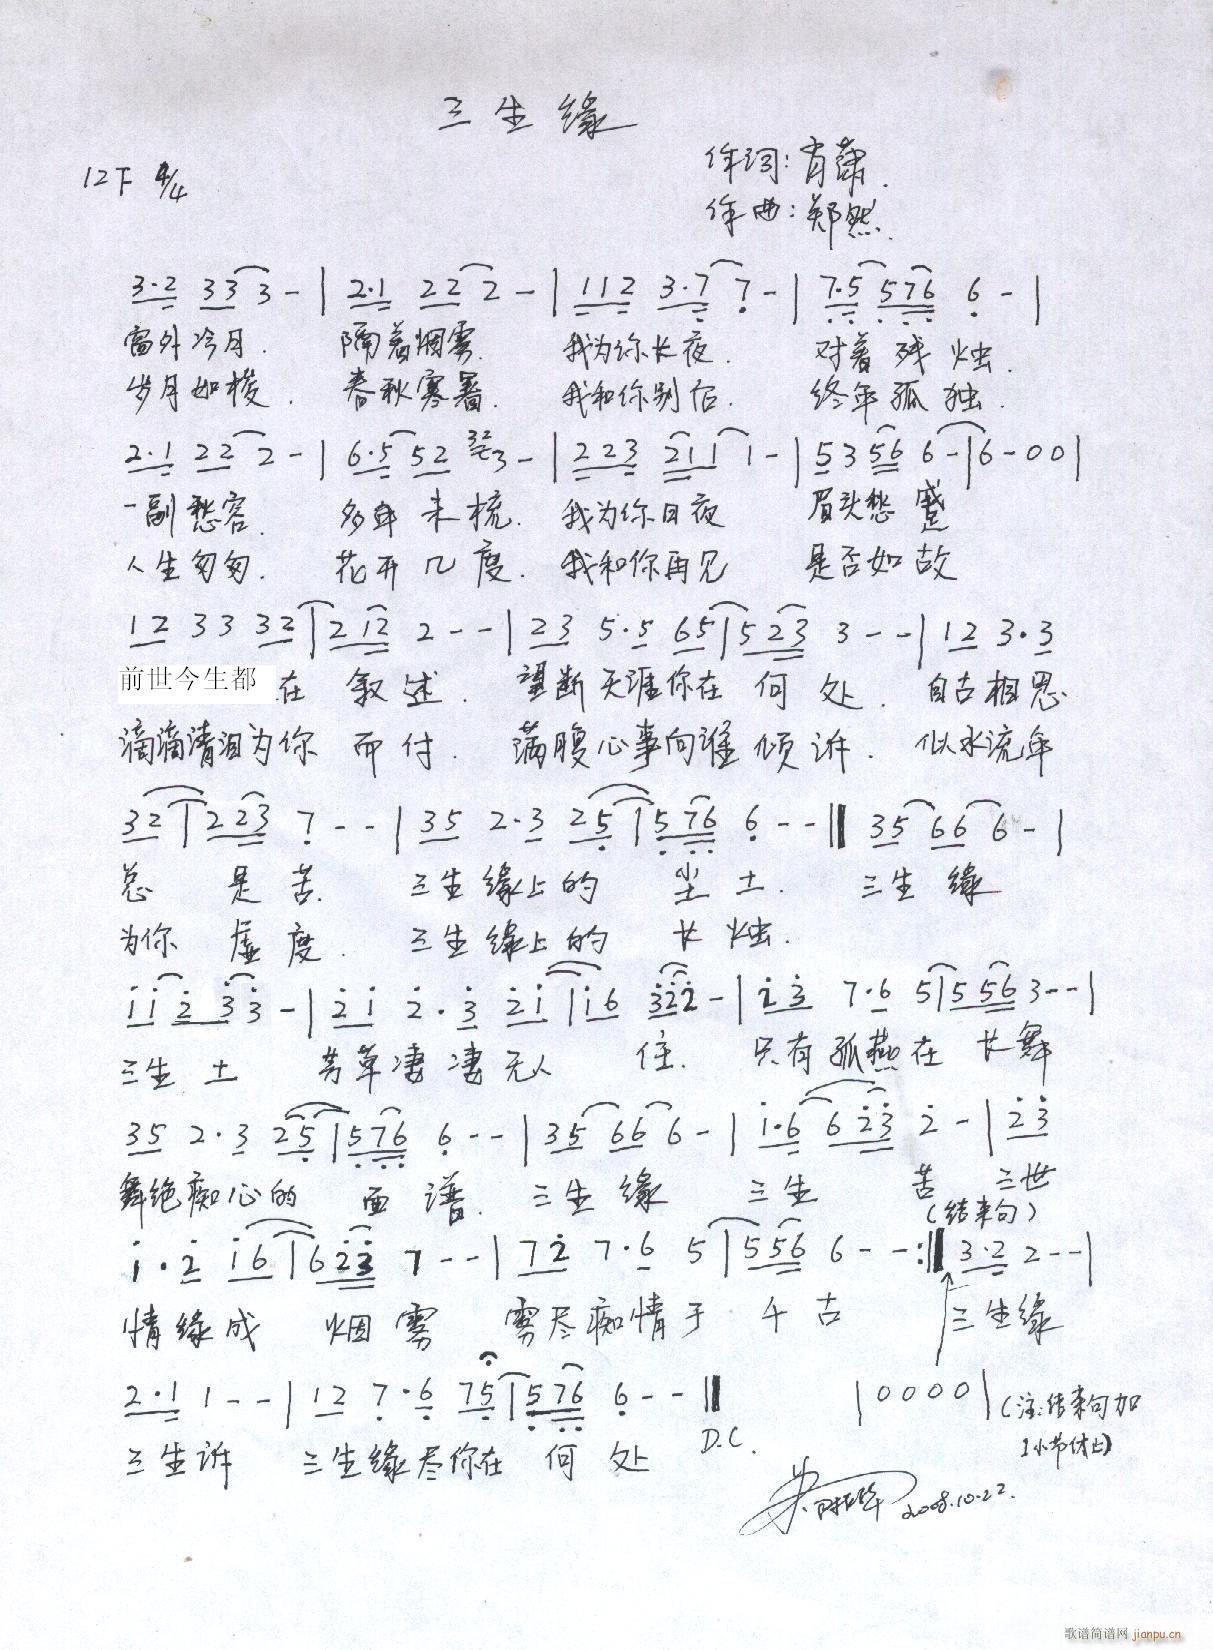 三生缘
作词:肖萧.
作曲:郑然.
12下 4/4
3·2 33 3 - | 2·1 22 2 - | 112 3·7 7 - | 7·5 576 6 - |
窗外冷月. 隔着烟雾. 我为你长夜. 对着残烛.
岁月如梭. 春秋寒暑. 我和你别后. 终年孤独.
2·1 22 2 - | 6·5 52 323 - | 223 211 1 - | 5356 6 - | 6 - 00 |
一副愁容. 多年未梳. 我为你日夜 眉头愁蹙
人生匆匆. 花开几度. 我和你再见 是否如故
12 33 32 | 212 2 - - | 23 5·5 65 | 523 3 - - | 12 3·3
前世今生都在 叙述. 望断天涯你在 何处. 自古相思
滴滴清泪为你 而付. 满腹心事向谁 倾诉. 似水流年
32 | 223 7 - - | 35 2·3 25 | 576 6 - - || 35 66 6 - |
总 是苦. 三生缘上的 尘土. 三生缘
为你 虚度. 三生缘上的 长烛.
11 2 33 - | 21 2·3 21 | 16 322 - | 23 7·6 5 | 556 3 - - |
三生土 芳草凄凄无人 住. 只有孤燕在 长舞
35 2·3 25 | 576 6 - - | 35 66 6 - | 1·6 623 2 - | 23
舞绝痴心的 面谱. 三生缘 三生 苦 三世
(结束句)
1·2 16 | 623 7 - - | 72 7·6 5 | 556 6 - - :|| 3·2 2 - - |
情缘成 烟雾 雾尽痴情于 千古 三生缘
2·1 1 - - | 12 7·6 75 | 576 6 - - || |0000| (注:结束句加
1小节休止)
D.C.
三生诉 三生缘尽你在 何处
2008.10.22.
歌谱简谱网 jianpu.cn